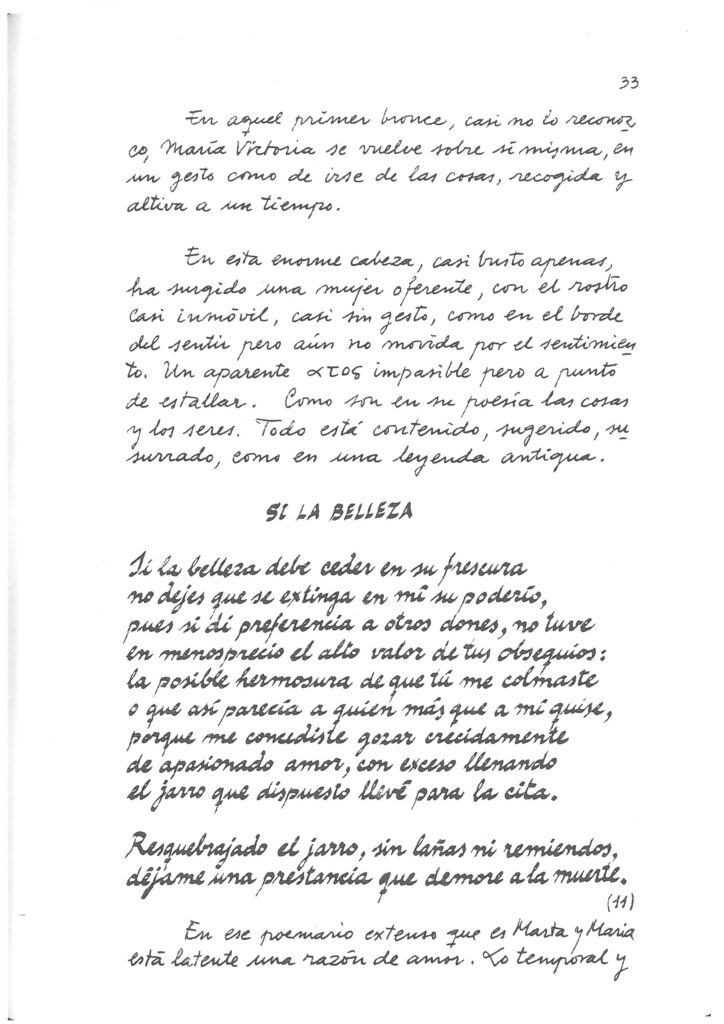 33
En aquel primer bronce, casi no lo reconoz
co, María Victoria se vuelve sobre sí misma, en
un gesto como de irse de las cosas, recogida y
altiva a un tiempo.
En esta enorme cabeza, casi busto apenas,
ha surgido una mujer oferente, con el rostro
casi inmóvil, casi sin gesto, como en el borde
del sentir pero aún no movida por el sentimien
to. Un aparente ατος impasible pero a punto
de estallar. Como son en su poesía las cosas
y los seres. Todo está contenido, sugerido, su
surrado, como en una leyenda antigua.
SI LA BELLEZA
Si la belleza debe ceder en su frescura
no dejes que se extinga en mí su poderío,
pues si di preferencia a otros dones, no tuve
en menosprecio el alto valor de tus obsequios:
la posible hermosura de que tú me colmaste
o que así parecía a quien más que a mí quise,
porque me concediste gozar crecidamente
de apasionado amor, con exceso llenando
el jarro que dispuesto llevé para la cita.
Resquebrajado el jarro, sin lañas ni remiendos,
déjame una prestancia que demore a la muerte.
(11)
En ese poemario extenso que es Marta y María
está latente una razón de amor. Lo temporal y